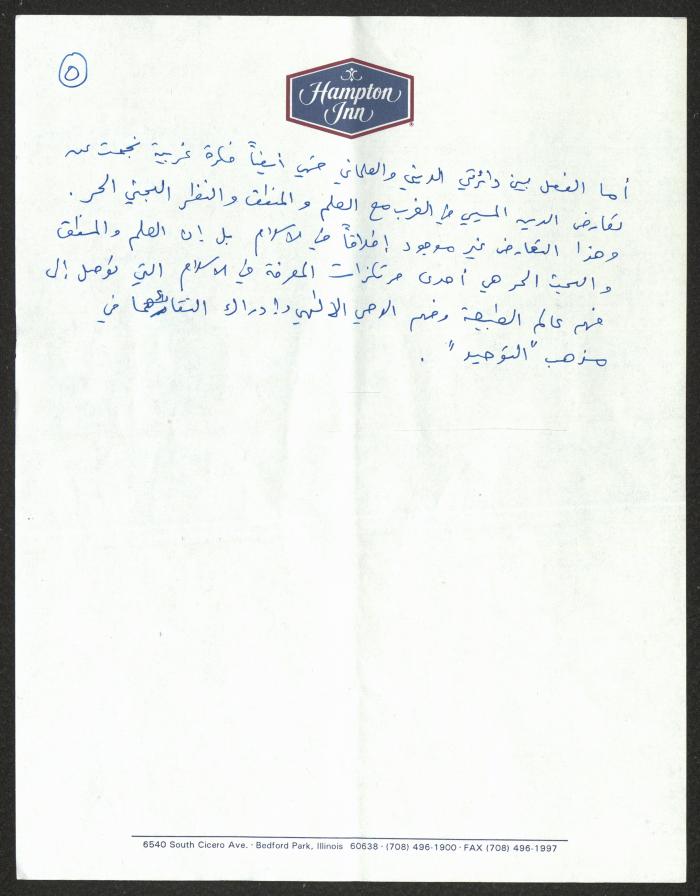 ٥
Hampton
Inn
أما الفصل بين دائرتي الديني والعلماني فهي أيضاً فكرة غربية نجمت عن
تعارض الدين المسيحي في الغرب مع العلم والمنطق والنظر البحثي الحر .
وهذا التعارض غير موجود إطلاقاً في الاسلام بل إن العلم والمنطق
والبحث الحر هي أحدى مرتكزات المعرفة في الاسلام التي توصل إلى
فهم عالم الطبيعة وفهم الوحي الالهي وإدراك في
مذهب "التوحيد" .
6540 South Cicero Ave. · Bedford Park, Illinois 60638 · (708) 496-1900 · FAX (708) 496-1997